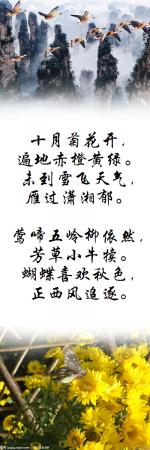 十月菊花开，
遍地赤橙黄绿。
未到雪飞天气，
雁过潇湘郁。
莺啼五岭柳依然，
芳草小牛犊。
蝴蝶喜欢秋色，
正西风追逐。